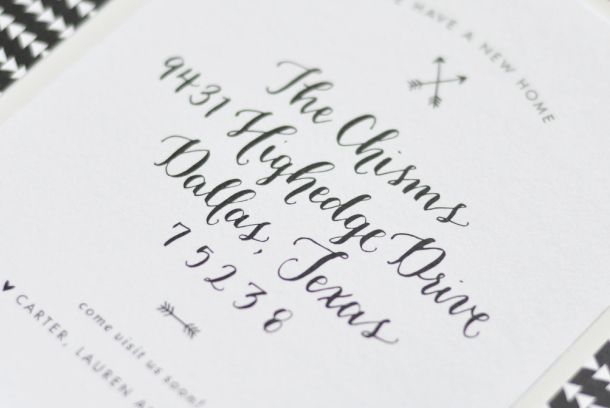 HAVE A NEW HOME
The Chisms
9431 Highedge Drive
Dallas, Texas
75238
come visit us soon!
♥ CARTER, LAUREN